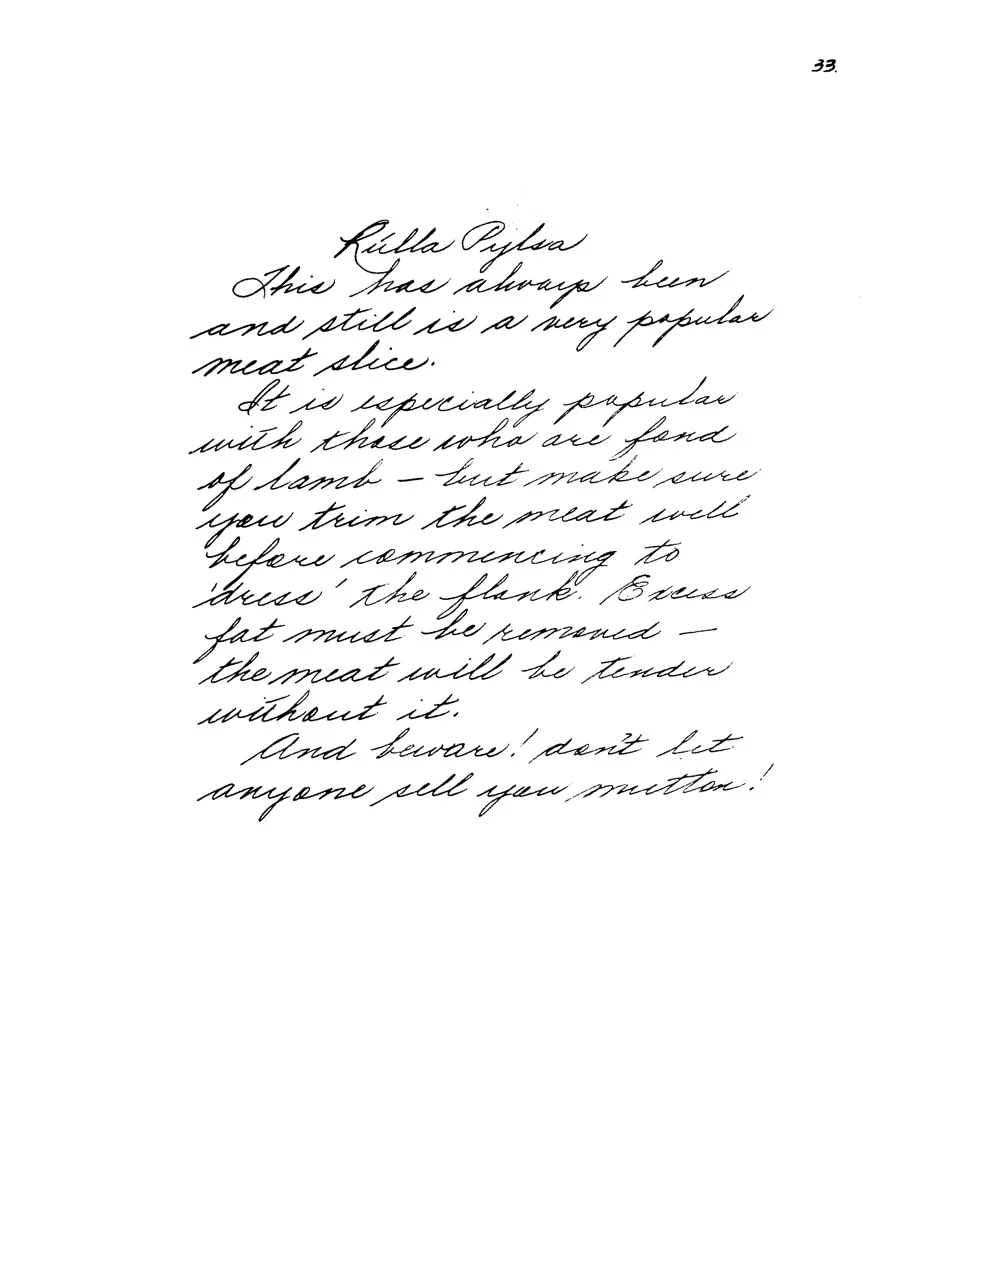 33.
Rúlla Pylsa
This has always been
and still is a very popular
meat slice.
It is especially popular
with those who are fond
of lamb – but make sure
you trim the meat well
before commencing to
'dress' the flank. Excess
fat must be removed –
the meat will be tender
without it.
And beware! don't let
anyone sell you mutton!